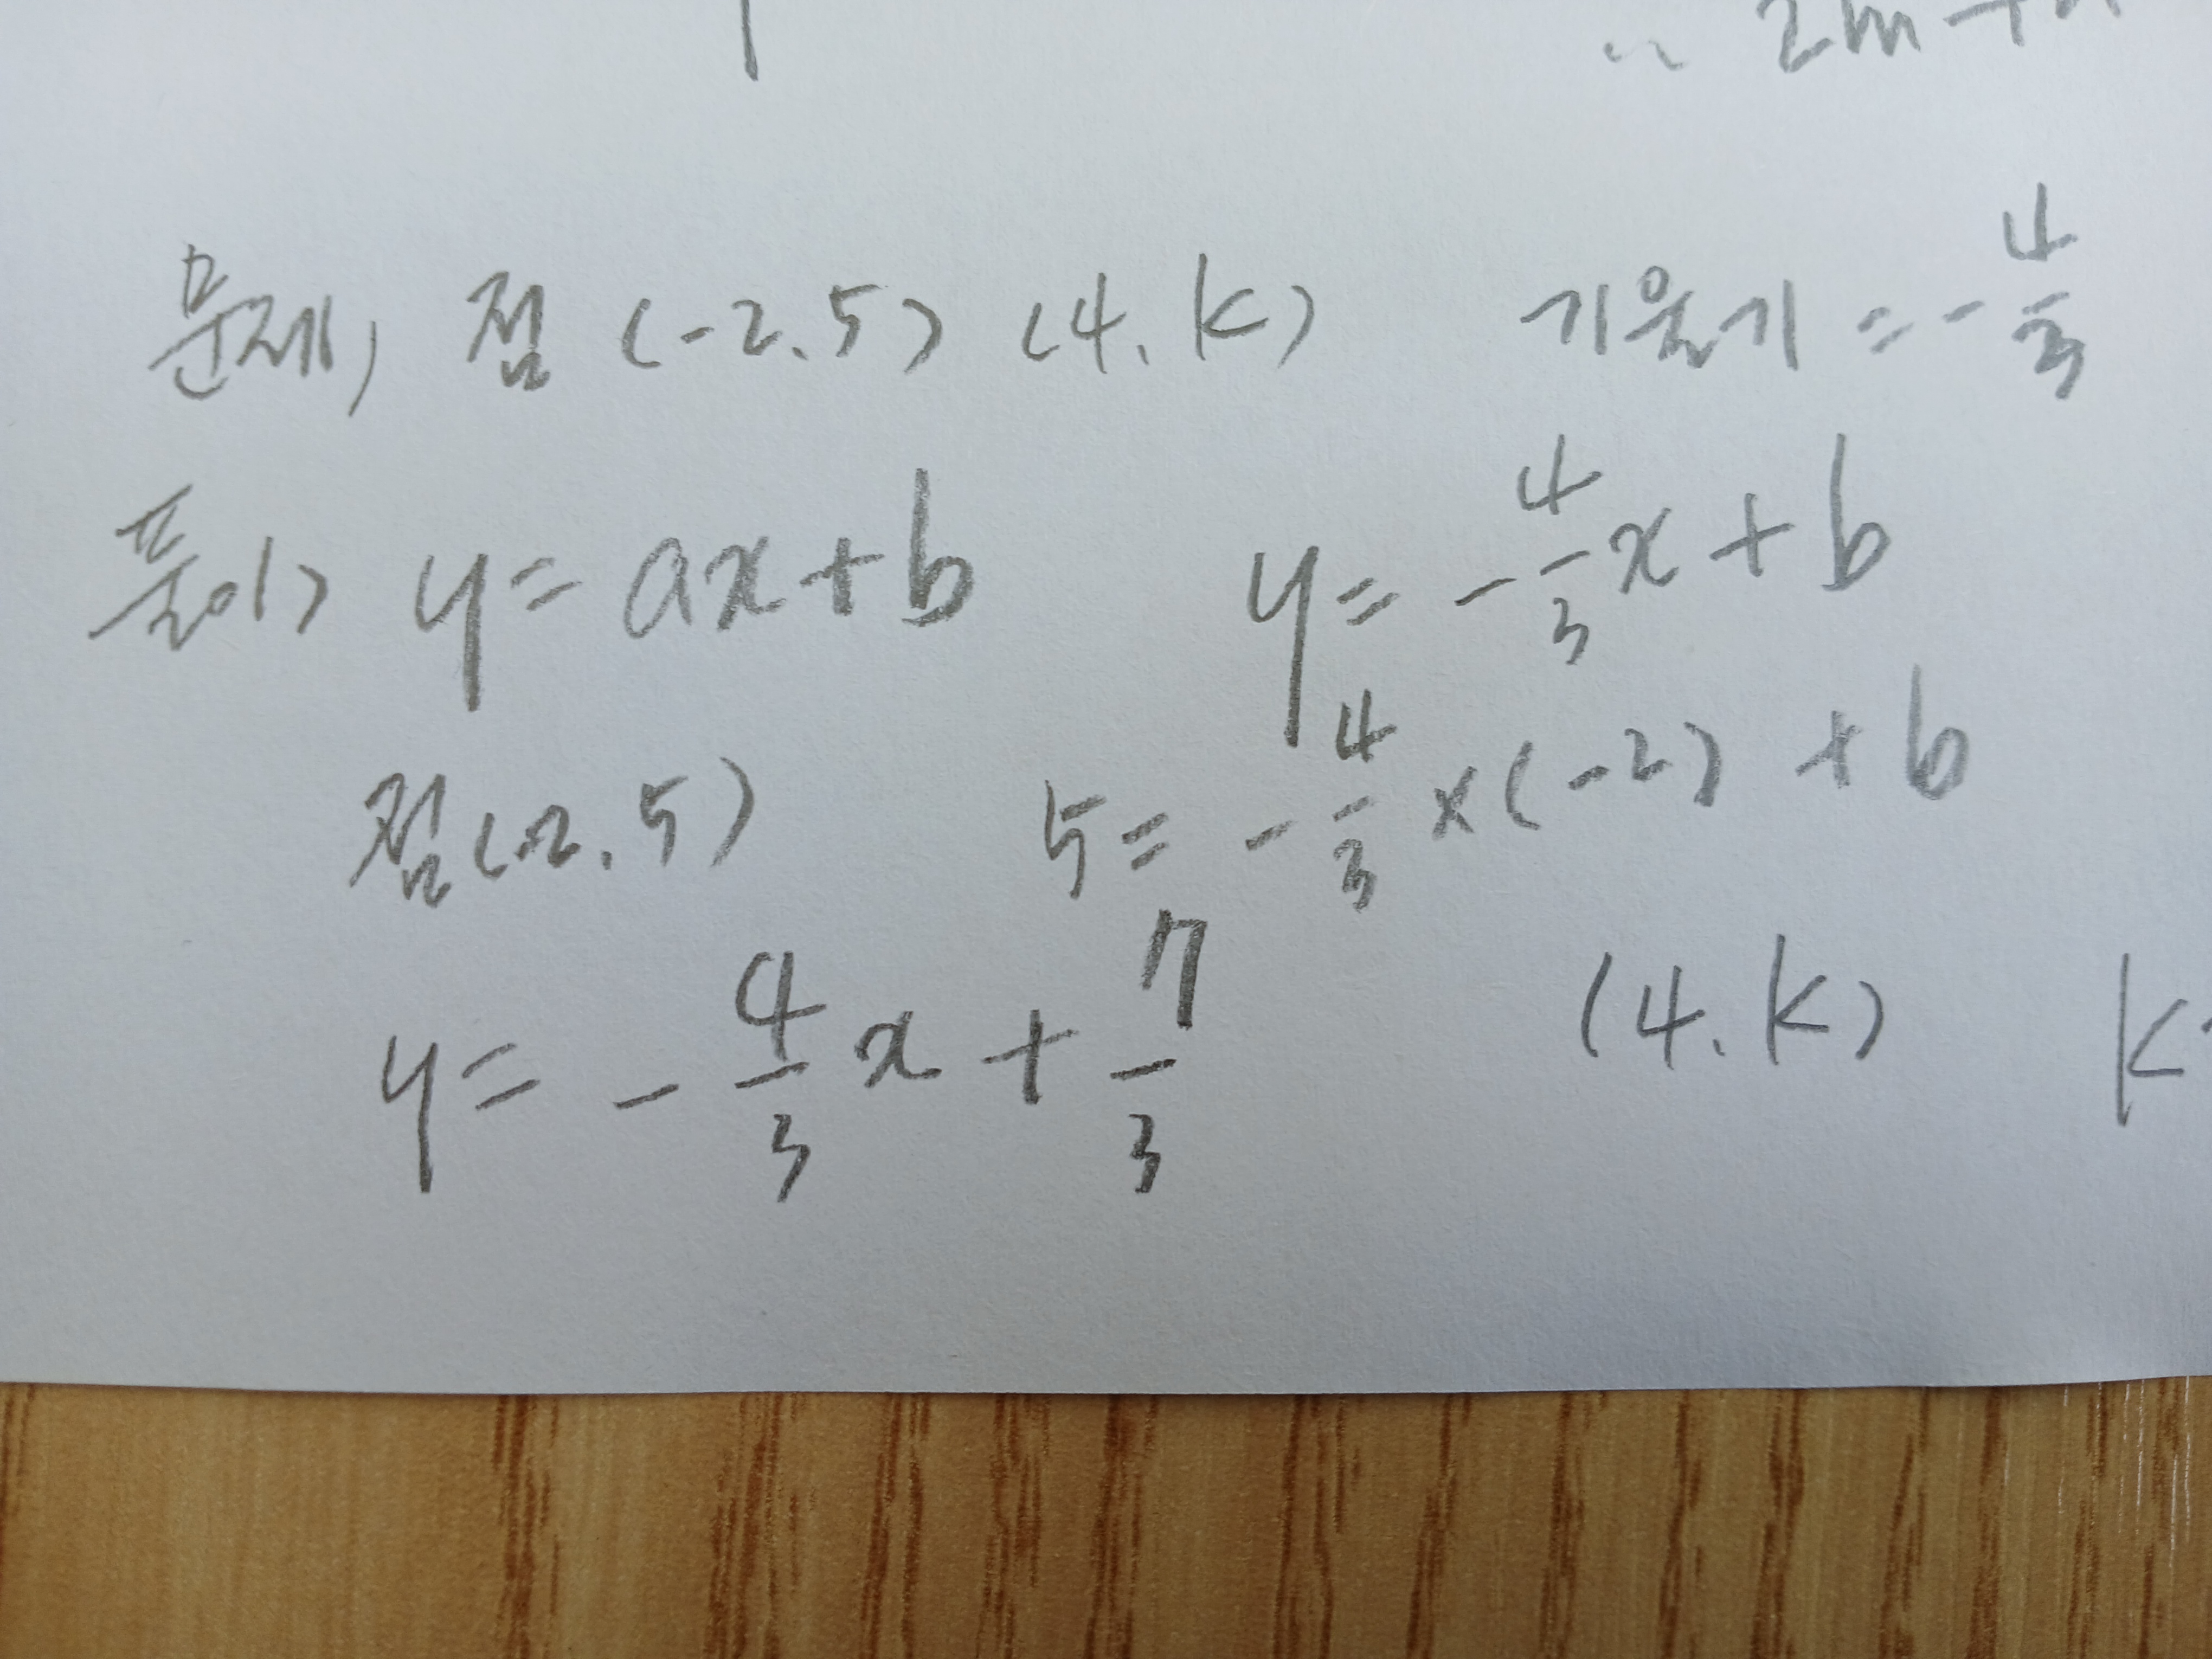 2m+
문제) 점 (-2.5) (4.k) 기울기 = -4/3
풀이> y = ax+b y = -4/3x+b
점(-2.5) 5 = -4/3×(-2)+b
y = -4/3x+7/3 (4.k) k